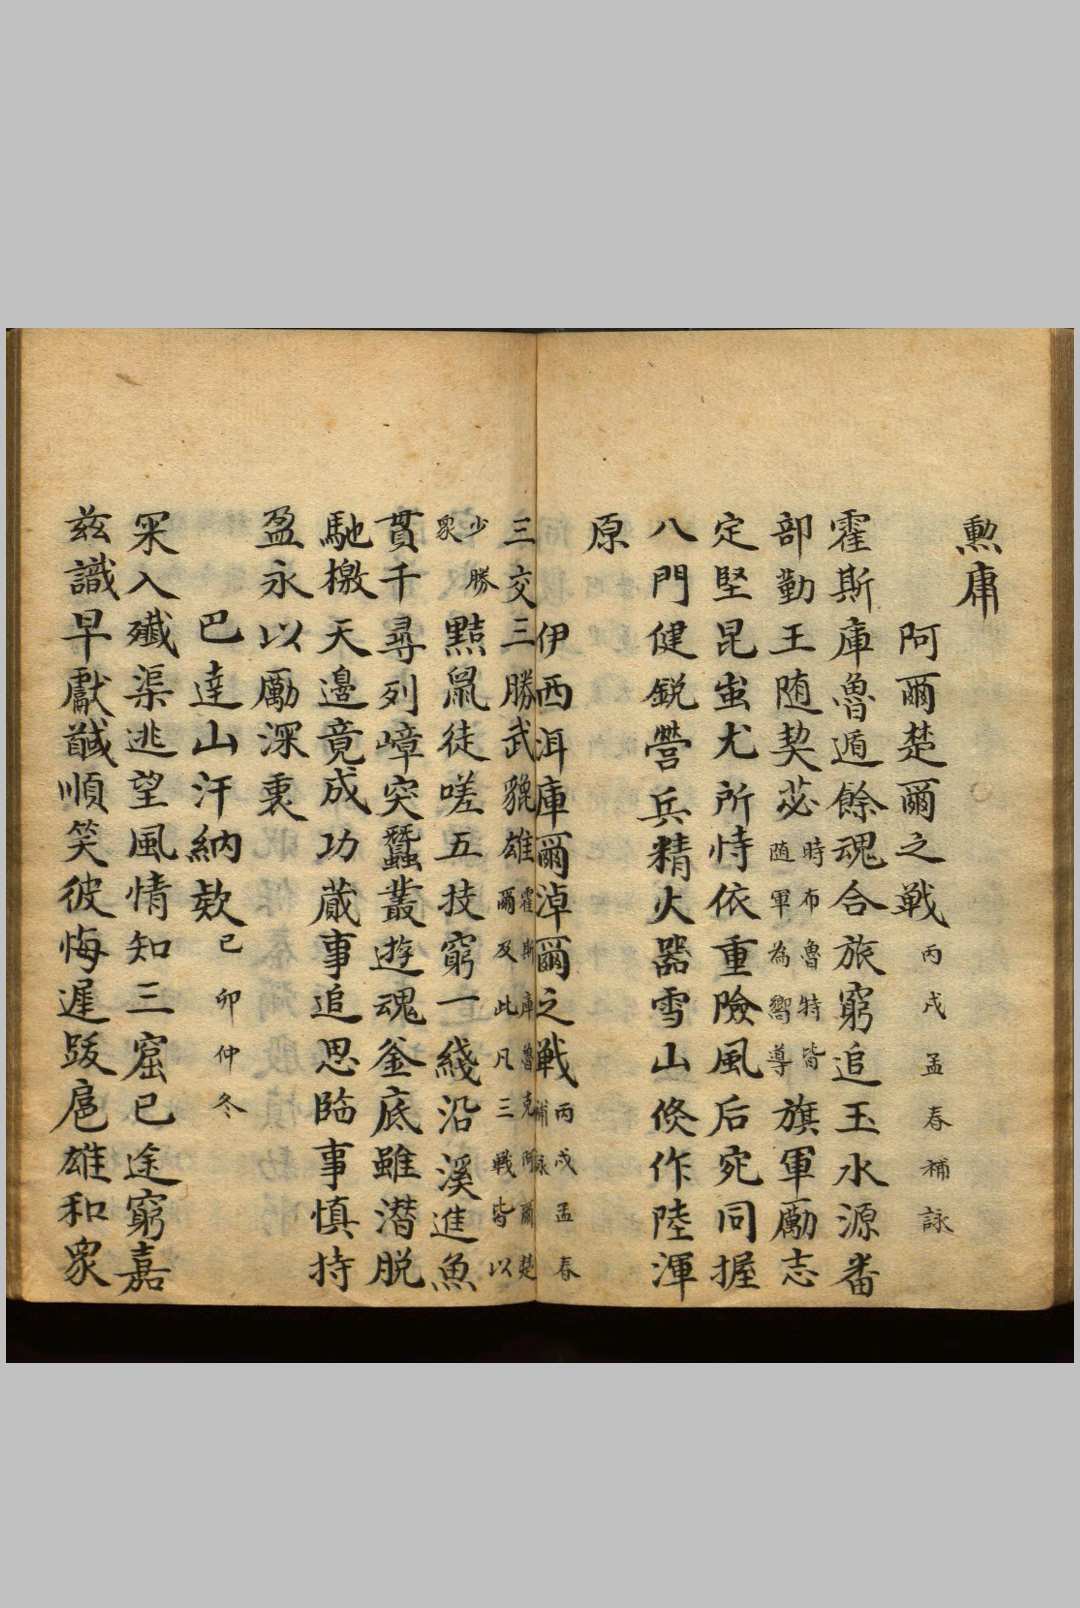 勲庸
阿爾楚爾之戦丙戌孟春補詠
霍斯庫魯遁餘魂合旅窮追玉水源畨
部勤王随契苾時布魯特皆随軍為嚮導旗軍勵志
定堅昆蚩尤所恃依重險風后宛同握
八門健鋭營兵精火器雪山倐作陸渾
原
伊西洱庫爾淖爾之戦丙戌孟春補詠
三交三勝武貔雄霍斯庫魯克阿爾楚爾及此凡三戦皆以
少勝衆黠鼠徒嗟五技窮一綫沿溪進魚
貫千尋列嶂突蠶叢遊魂釜底雖潛脱
馳檄天邉竟成功蕆事追思臨事慎持
盈永以勵深衷
巴逹山汗納欵己卯仲冬
罙入殲渠逃望風情知三窟已途窮嘉
兹識早獻馘順笑彼悔遲跋扈雄和衆